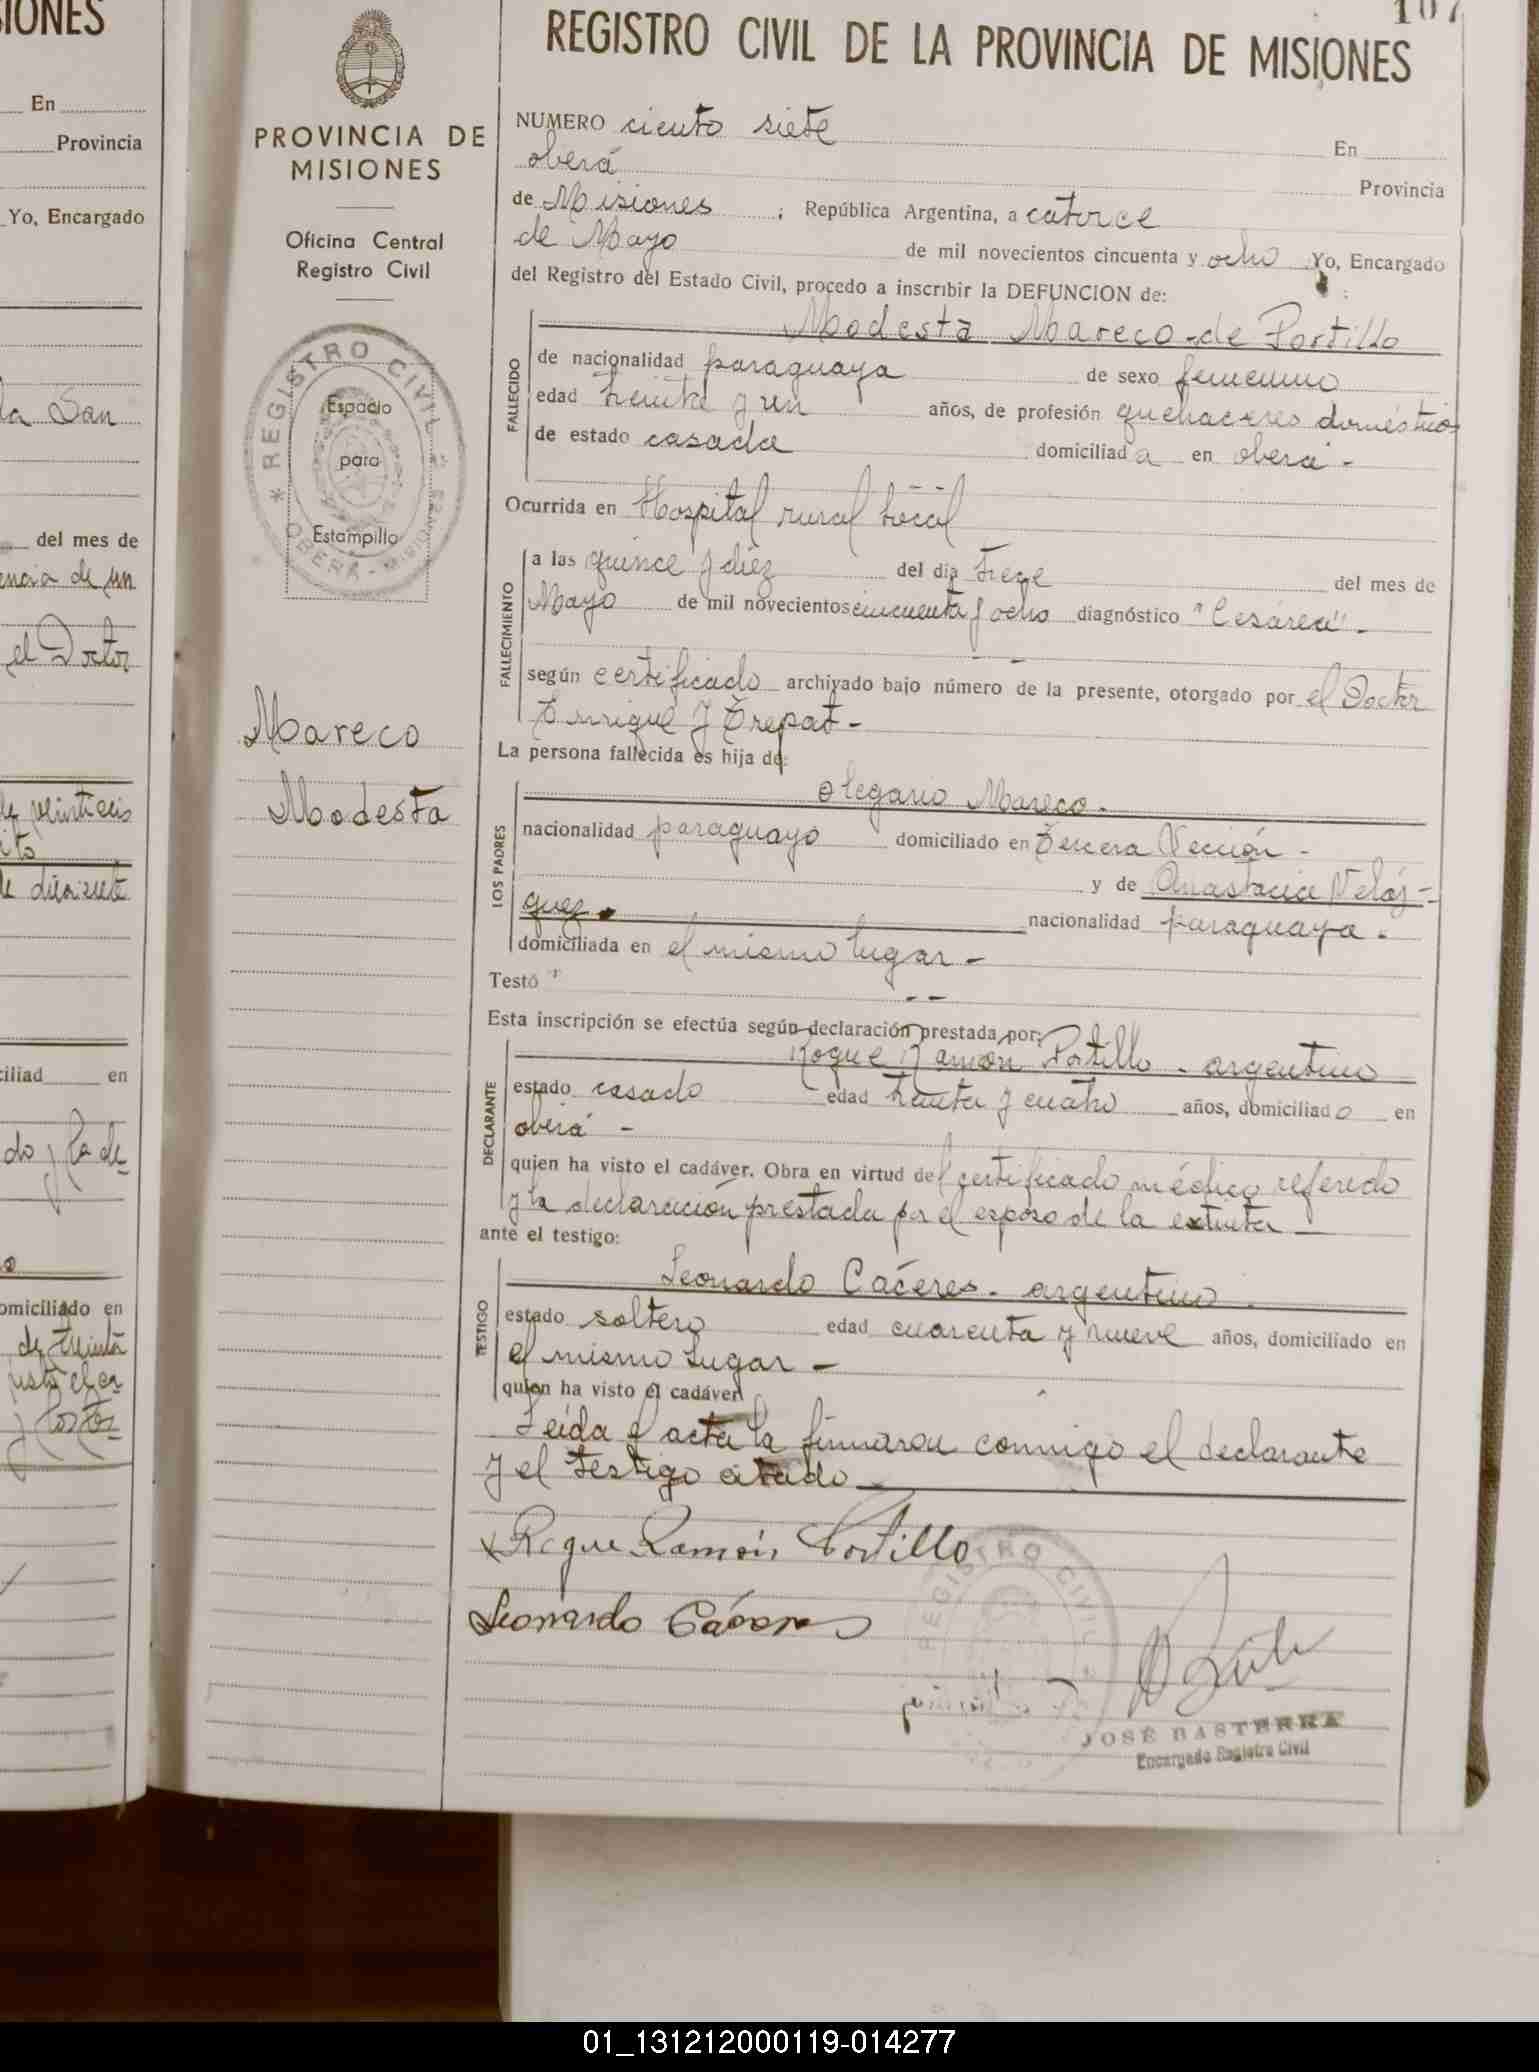 SIONES
En
Provincia
Yo, Encargado
la San
del mes de
encia de un
el Doctor
de veintiseis
ito
de diecisiete
ciliad en
do y la de
omiciliado en
de treinta
107
REGISTRO CIVIL DE LA PROVINCIA DE MISIONES
PROVINCIA DE
MISIONES
Oficina Central
Registro Civil
REGISTRO CIVIL
OBERÁ - MISIONES
Espacio
para
Estampilla
Mareco
Modesta
NUMERO ciento siete En
oberá Provincia
de Misiones ; República Argentina, a catorce
de Mayo de mil novecientos cincuenta y ocho Yo, Encargado
del Registro del Estado Civil, procedo a inscribir la DEFUNCION de:
FALLECIDO
Modesta Mareco de Portillo
de nacionalidad paraguaya de sexo femenino
edad treinta y un años, de profesión quehaceres domésticos
de estado casada domiciliad a en oberá -
Ocurrida en Hospital rural local
FALLECIMIENTO
a las quince y diez del día trece del mes de
Mayo de mil novecientos cincuenta y ocho diagnóstico "Cesárea" -
según certificado archivado bajo número de la presente, otorgado por el Doctor
Enrique J Trepat -
La persona fallecida es hija de:
LOS PADRES
Olegario Mareco -
nacionalidad paraguayo domiciliado en Tercera Sección -
y de Anastacia Veláz-
quez - nacionalidad paraguaya -
domiciliada en el mismo lugar -
Testó
Esta inscripción se efectúa según declaración prestada por:
DECLARANTE
Roque Ramón Portillo - argentino
estado casado edad treinta y cuatro años, domiciliado en
oberá -
quien ha visto el cadáver. Obra en virtud del certificado médico referido
y la declaración prestada por el esposo de la extinta
ante el testigo:
TESTIGO
Leonardo Cáceres - argentino
estado soltero edad cuarenta y nueve años, domiciliado en
el mismo lugar -
quien ha visto el cadáver
Leída el acta la firmaron conmigo el declarante
y el testigo citado
Roque Ramón Portillo
Leonardo Cáceres
REGISTRO CIVIL
JOSÉ BASTERRA
Encargado Registro Civil
01_131212000119-014277